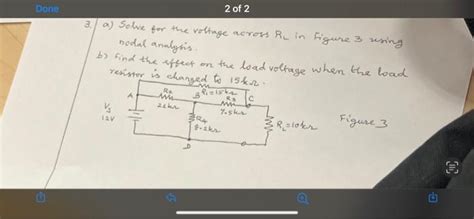 Done
2 of 2
3. a) Solve for the voltage across RL in Figure 3 using
nodal analysis.
b) Find the effect on the load voltage when the load
resistor is changed to 15kΩ.
R1=15kΩ
A
R2
B
R3
C
22kΩ
7.5kΩ
VS
12V
R4
8.2kΩ
RL=10kΩ
Figure 3
D